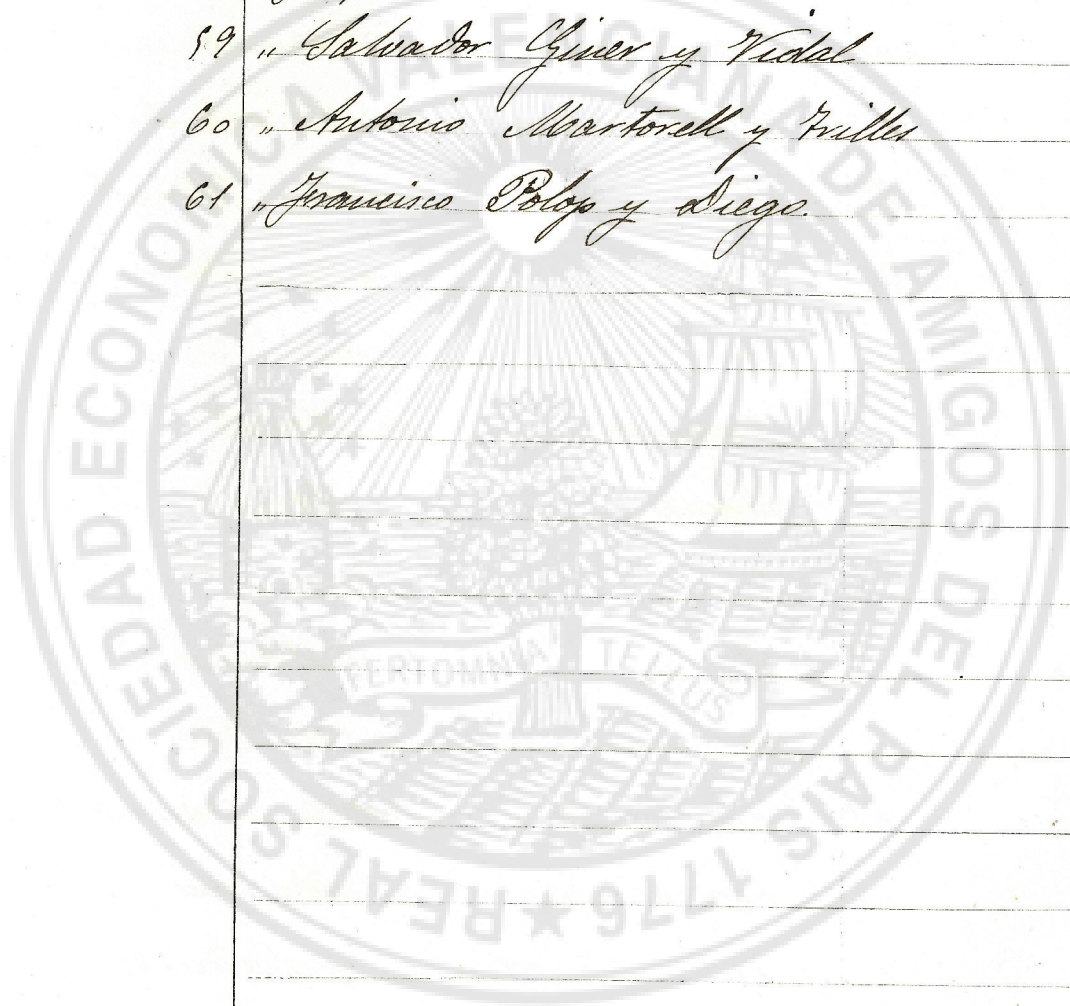 59 " Salvador Giner y Vidal
60 " Antonio Martorell y Trilles
61 " Francisco Polop y Diego.
REAL SOCIEDAD ECONOMICA VALENCIANA DE AMIGOS DEL PAIS 1776
FERTONIVA TELLUS